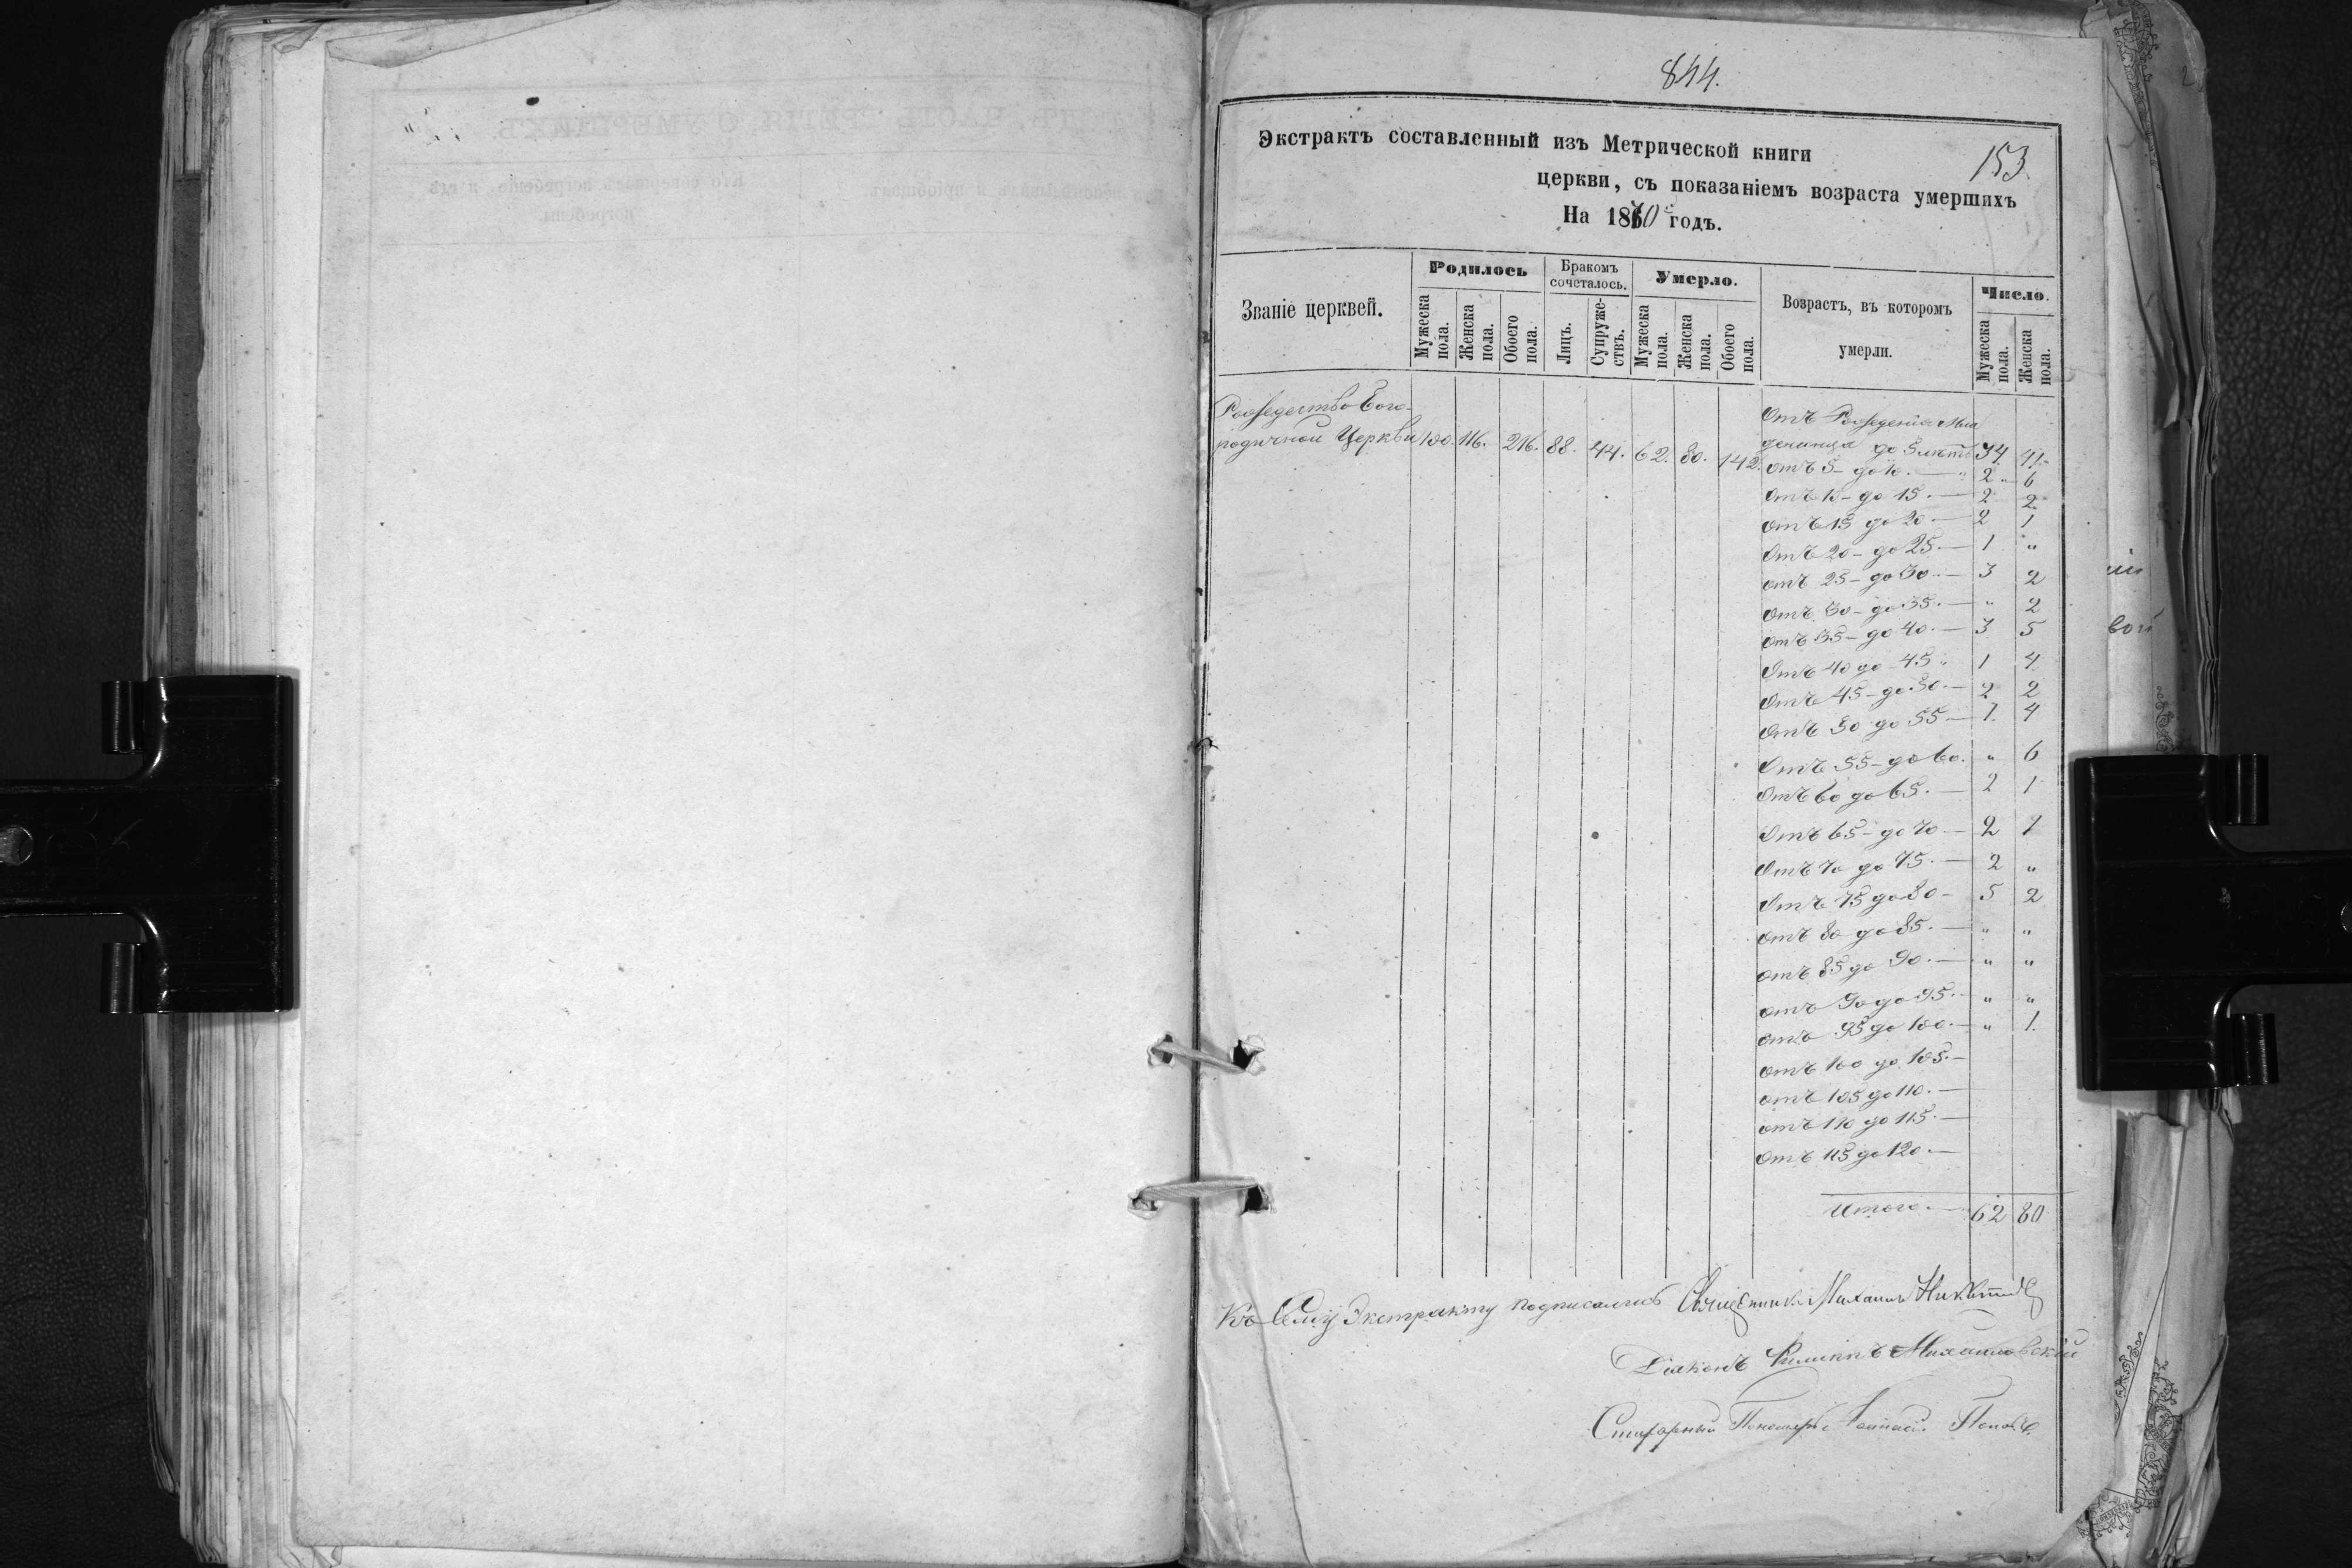 844.
Экстрактъ составленный изъ Метрической книги
153.
церкви, съ показаніемъ возраста умершихъ
На 1870 годъ.
Званіе церквей.
Родилось
Бракомъ сочеталось.
Умерло.
Возрастъ, въ которомъ умерли.
Число.
Мужеска пола.
Женска пола.
Обоего пола.
Лицъ.
Супружествъ.
Мужеска пола.
Женска пола.
Обоего пола.
Мужеска пола.
Женска пола.
Рождество Бого-
родичной Церкви 100. 116. 216. 88. 44. 62. 80. 142.
Отъ Рожденія Мла
денца до 5 лѣтъ 34 41
отъ 5 - до 10. — 2 6
Отъ 10 - до 15. — 2 2
отъ 15 до 20 — 2 1
Отъ 20 - до 25. — 1 „
отъ 25 - до 30. — 3 2
Отъ 30 - до 35. — „ 2
отъ 35 - до 40. — 3 5
Отъ 40 до 45 „ 1 4
Отъ 45 - до 50. — 2 2
Отъ 50 до 55 — 1. 4
Отъ 55 - до 60. „ 6
Отъ 60 до 65. — 2 1
Отъ 65 - до 70 — 2 1
Отъ 70 до 75. — 2 „
Отъ 75 до 80 - 5 2
отъ 80 до 85. — „ „
отъ 85 до 90. — „ „
отъ 90 до 95. — „ „
отъ 95 до 100. — „ 1.
отъ 100 до 105. —
отъ 105 до 110. —
отъ 110 до 115. —
Отъ 115 до 120. —
Итого. — 62 80
Къ Сему Экстракту подписались Священникъ Михаилъ
Діаконъ Филиппъ Михайловскій
Пономарь Поповъ